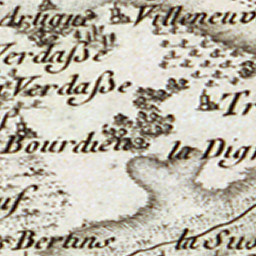 Artigue
Villeneuv
Verdasse
Verdasse
Tr
Bourdieu
la Dign
uf
s Bertins
la Sus